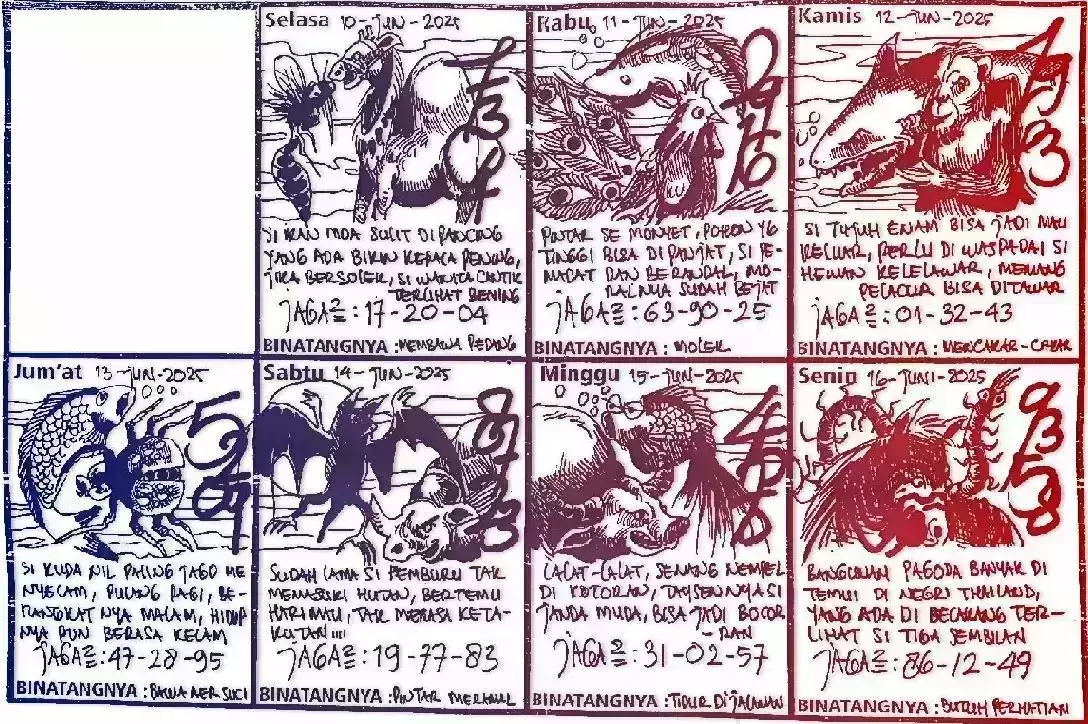 Selasa 10-JUN-2025
SI IKAN MOA SULIT DIPANCING
YANG ADA BIKIN KEPALA PENING,
JIKA BERSOLEK, SI WANITA CANTIK
TERLIHAT BENING
JAGA2=: 17-20-04
BINATANGNYA : MEMBAWA PEDANG
Rabu 11-JUN-2025
PINTAR SE MONYET, POHON YG
TINGGI BISA DI PANJAT, SI PE-
DAN BERANDAL, MO-
RALNYA SUDAH BEJAT
JAGA2=: 63-90-25
BINATANGNYA : MOLEK
Kamis 12-JUN-2025
SI TUJUH ENAM BISA JADI MAU
KELUAR, PERLU DI WASPADAI SI
HEWAN KELELAWAR, MEMANG
PELACUR BISA DITAWAR
JAGA2=: 01-32-43
BINATANGNYA : MENCAKAR-CAKAR
Jum'at 13-JUN-2025
SI KUDA NIL PALING JAGO ME
NYELAM, PULANG PAGI, BE-
RANGKAT NYA MALAM, HIDUP
NYA PUN BERASA KELAM
JAGA2=: 47-28-95
BINATANGNYA : BAWA AER SUCI
Sabtu 14-JUN-2025
SUDAH LAMA SI PEMBURU TAK
MEMASUKI HUTAN, BERTEMU
HARIMAU, TAK MERASA KETA-
KUTAN !!!!
JAGA2=: 19-77-83
BINATANGNYA : PINTAR MERAMAL
Minggu 15-JUN-2025
LALAT-LALAT, SENANG NEMPEL
DI KOTORAN, TAYSENNYA SI
JANDA MUDA, BISA JADI BOCOR
-RAN
JAGA2=: 31-02-57
BINATANGNYA : TIDUR DI JALANAN
Senin 16-JUNI-2025
9358
BANGUNAN PAGODA BANYAK DI
TEMUI DI NEGRI THAILAND,
YANG ADA DI BELAKANG TER-
LIHAT SI TIGA SEMBILAN
JAGA2=: 86-12-49
BINATANGNYA : BUTUH PERHATIAN